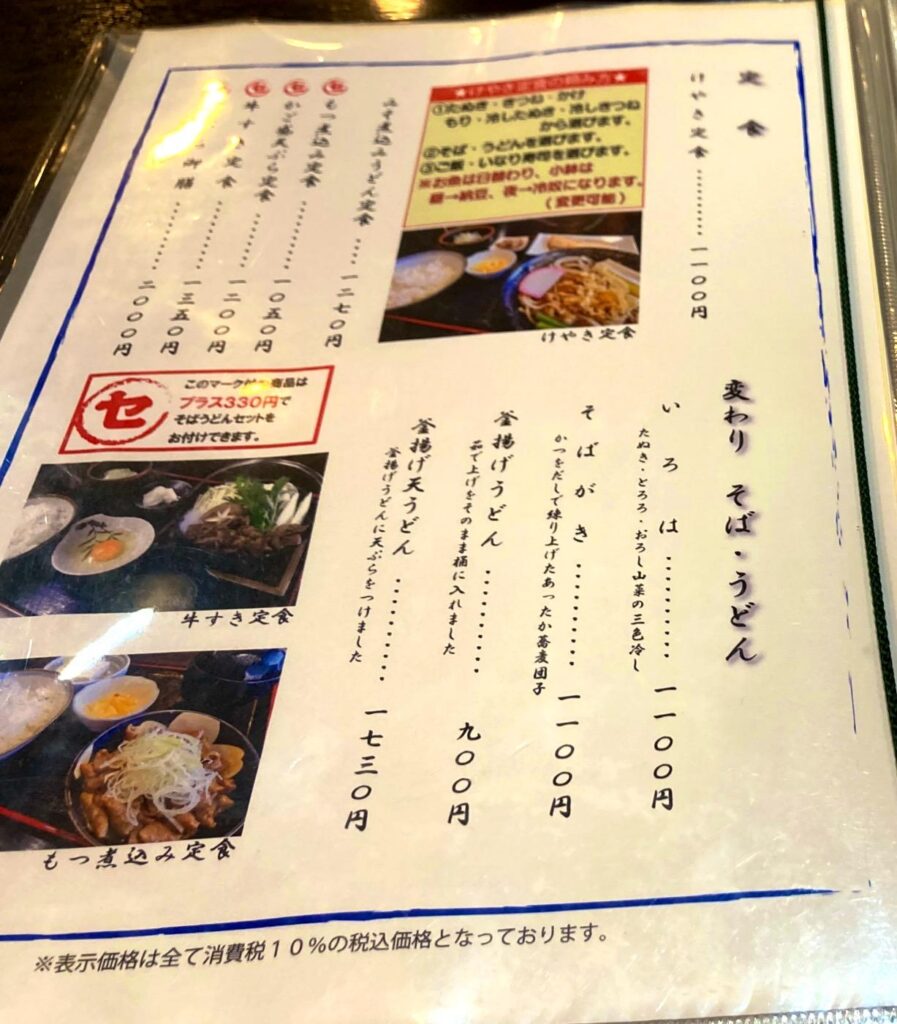 定食
けやき定食 ........... 一一〇〇円
★けやき定食の頼み方★
①たぬき・きつね・かけ
もり・冷したぬき・冷しきつね
から選びます。
②そば・うどんを選びます。
③ご飯・いなり寿司を選びます。
※お魚は日替わり、小鉢は
昼→納豆、夜→冷奴になります。
(変更可能)
けやき定食
みそ煮込みうどん定食 .... 一二七〇円
セ もつ煮込み定食 ......... 一〇五〇円
セ かご盛天ぷら定食 ....... 一二〇〇円
セ 牛すき定食 ......... 一三五〇円
御膳 ......... 二〇〇〇円
セ
このマーク付 商品は
プラス330円で
そばうどんセットを
お付けできます。
牛すき定食
もつ煮込み定食
変わり そば・うどん
いろは ......... 一一〇〇円
たぬき・とろろ・おろし山菜の三色冷し
そばがき ......... 一一〇〇円
かつをだしで練り上げたあったか蕎麦団子
釜揚げうどん ......... 九〇〇円
茹で上げをそのまま桶に入れました
釜揚げ天うどん ......... 一七三〇円
釜揚げうどんに天ぷらをつけました
※表示価格は全て消費税10%の税込価格となっております。